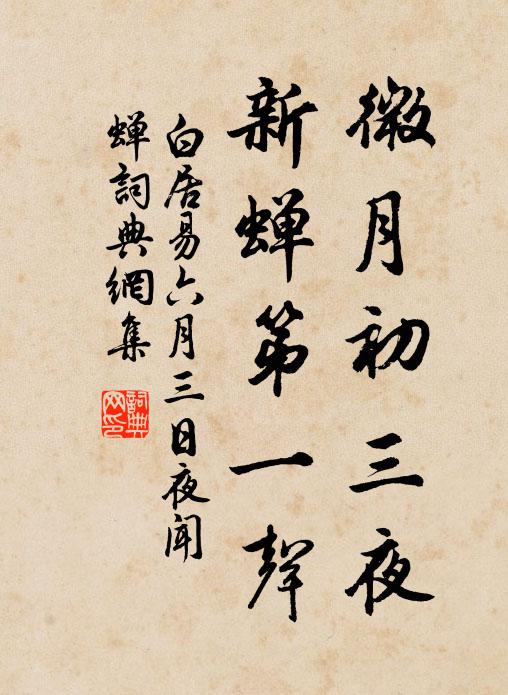 微月初三夜
新蝉第一聲
白居易六月三日夜聞
蝉詞典網集
詞典
网印